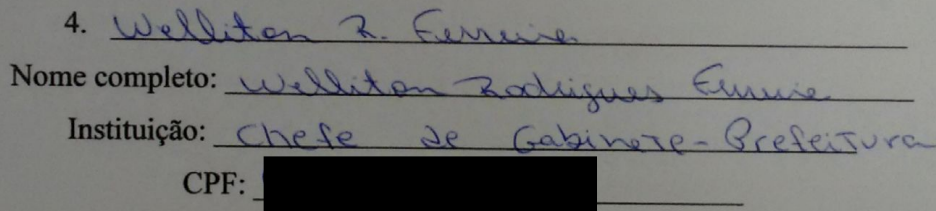 4. Welliton R. Ferreira
Nome completo: Welliton Rodrigues Ferreira
Instituição: Chefe de Gabinete - Prefeitura
CPF: